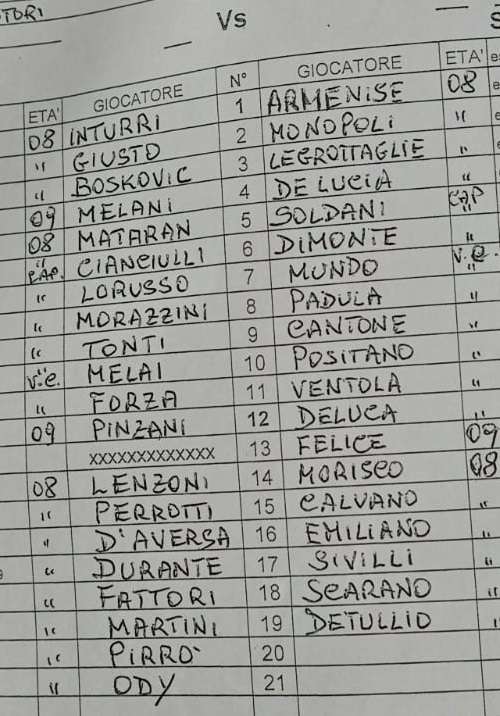 OTORI
Vs
ETA' GIOCATORE N° GIOCATORE ETA'
08 INTURRI 1 ARMENISE 08
" GIUSTO 2 MONOPOLI "
" BOSKOVIC 3 LEGROTTAGLIE "
09 MELANI 4 DE LUCIA "
08 MATARAN 5 SOLDANI CAP "
" CAP. CIANCIULLI 6 DIMONTE "
" LORUSSO 7 MUNDO V.C. "
" MORAZZINI 8 PADULA "
" TONTI 9 CANTONE "
V."C. MELAI 10 POSITANO "
" FORZA 11 VENTOLA "
09 PINZANI 12 DELUCA "
XXXXXXXXXXXXX 13 FELICE 09
08 LENZONI 14 MORISCO 08
" PERROTTI 15 CALVANO "
" D'AVERSA 16 EMILIANO "
" DURANTE 17 SIVILLI "
" FATTORI 18 SCARANO "
" MARTINI 19 DETULLIO "
" PIRRO' 20
" ODY 21